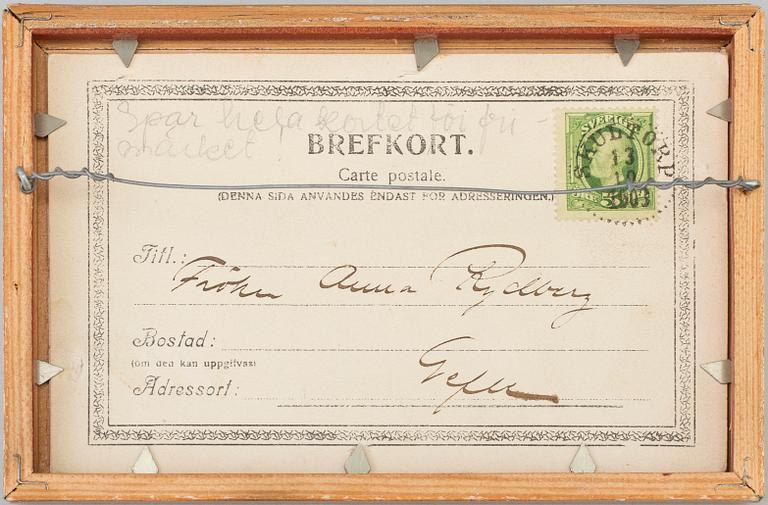 Spar hela kortet för fri-
märket
BREFKORT.
Carte postale.
(DENNA SIDA ANVÄNDES ENDAST FÖR ADRESSERINGEN.)
SVERIGE
SKULTORP
13
10
1903
Titl.:
Fröken Anna Rydberg
Bostad:
(om den kan uppgifvas)
Adressort:
Gefle